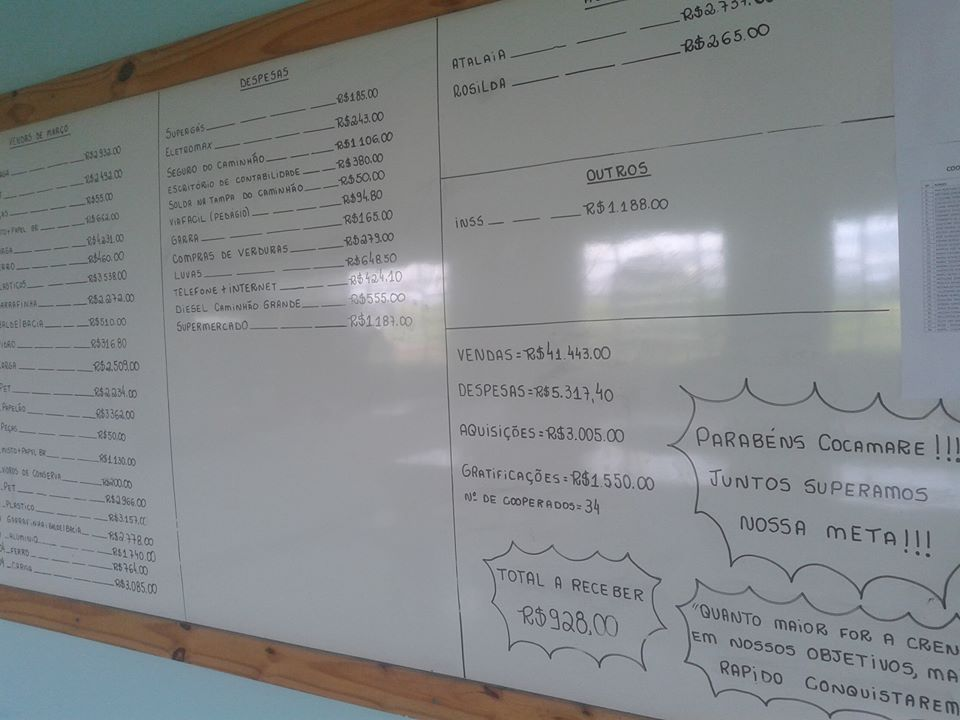 VENDAS DE MARÇO
R$2932.00
R$2492.00
R$55.00
R$662.00
R$4231.00
R$460.00
R$3.538.00
R$2.272.00
R$510.00
R$316.80
R$2.509.00
PET R$2.234.00
PAPELÃO R$3362.00
PEÇAS R$50.00
MISTO+PAPEL BR R$1.130.00
VIDROS DE CONSERVA R$200.00
PET R$2.966.00
PLASTICO R$3.157.00
GARRAFINHA/BALDE/BACIA R$2.778.00
ALUMINIO R$1.740.00
FERRO R$764.00
CARGA R$3.085.00
DESPESAS
SUPERGÁS R$185.00
ELETROMAX R$243.00
SEGURO DO CAMINHÃO R$1106.00
ESCRITÓRIO DE CONTABILIDADE R$380.00
SOLDA NA TAMPA DO CAMINHÃO R$50.00
VIAFACIL (PEDAGIO) R$94.80
GARRA R$165.00
COMPRAS DE VERDURAS R$279.00
LUVAS R$648.50
TELEFONE + INTERNET R$424.10
DIESEL CAMINHÃO GRANDE R$555.00
SUPERMERCADO R$1.187.00
ATALAIA R$2.737.00
ROSILDA R$265.00
OUTROS
INSS R$1.188.00
VENDAS = R$41.443.00
DESPESAS = R$5.317,40
AQUISIÇÕES = R$3.005.00
GRATIFICAÇÕES = R$1.550.00
Nº DE COOPERADOS = 34
TOTAL A RECEBER
R$928,00
PARABÉNS COCAMARE!!!
JUNTOS SUPERAMOS
NOSSA META!!!
"QUANTO MAIOR FOR A CREN
EM NOSSOS OBJETIVOS, MA
RAPIDO CONQUISTAREM